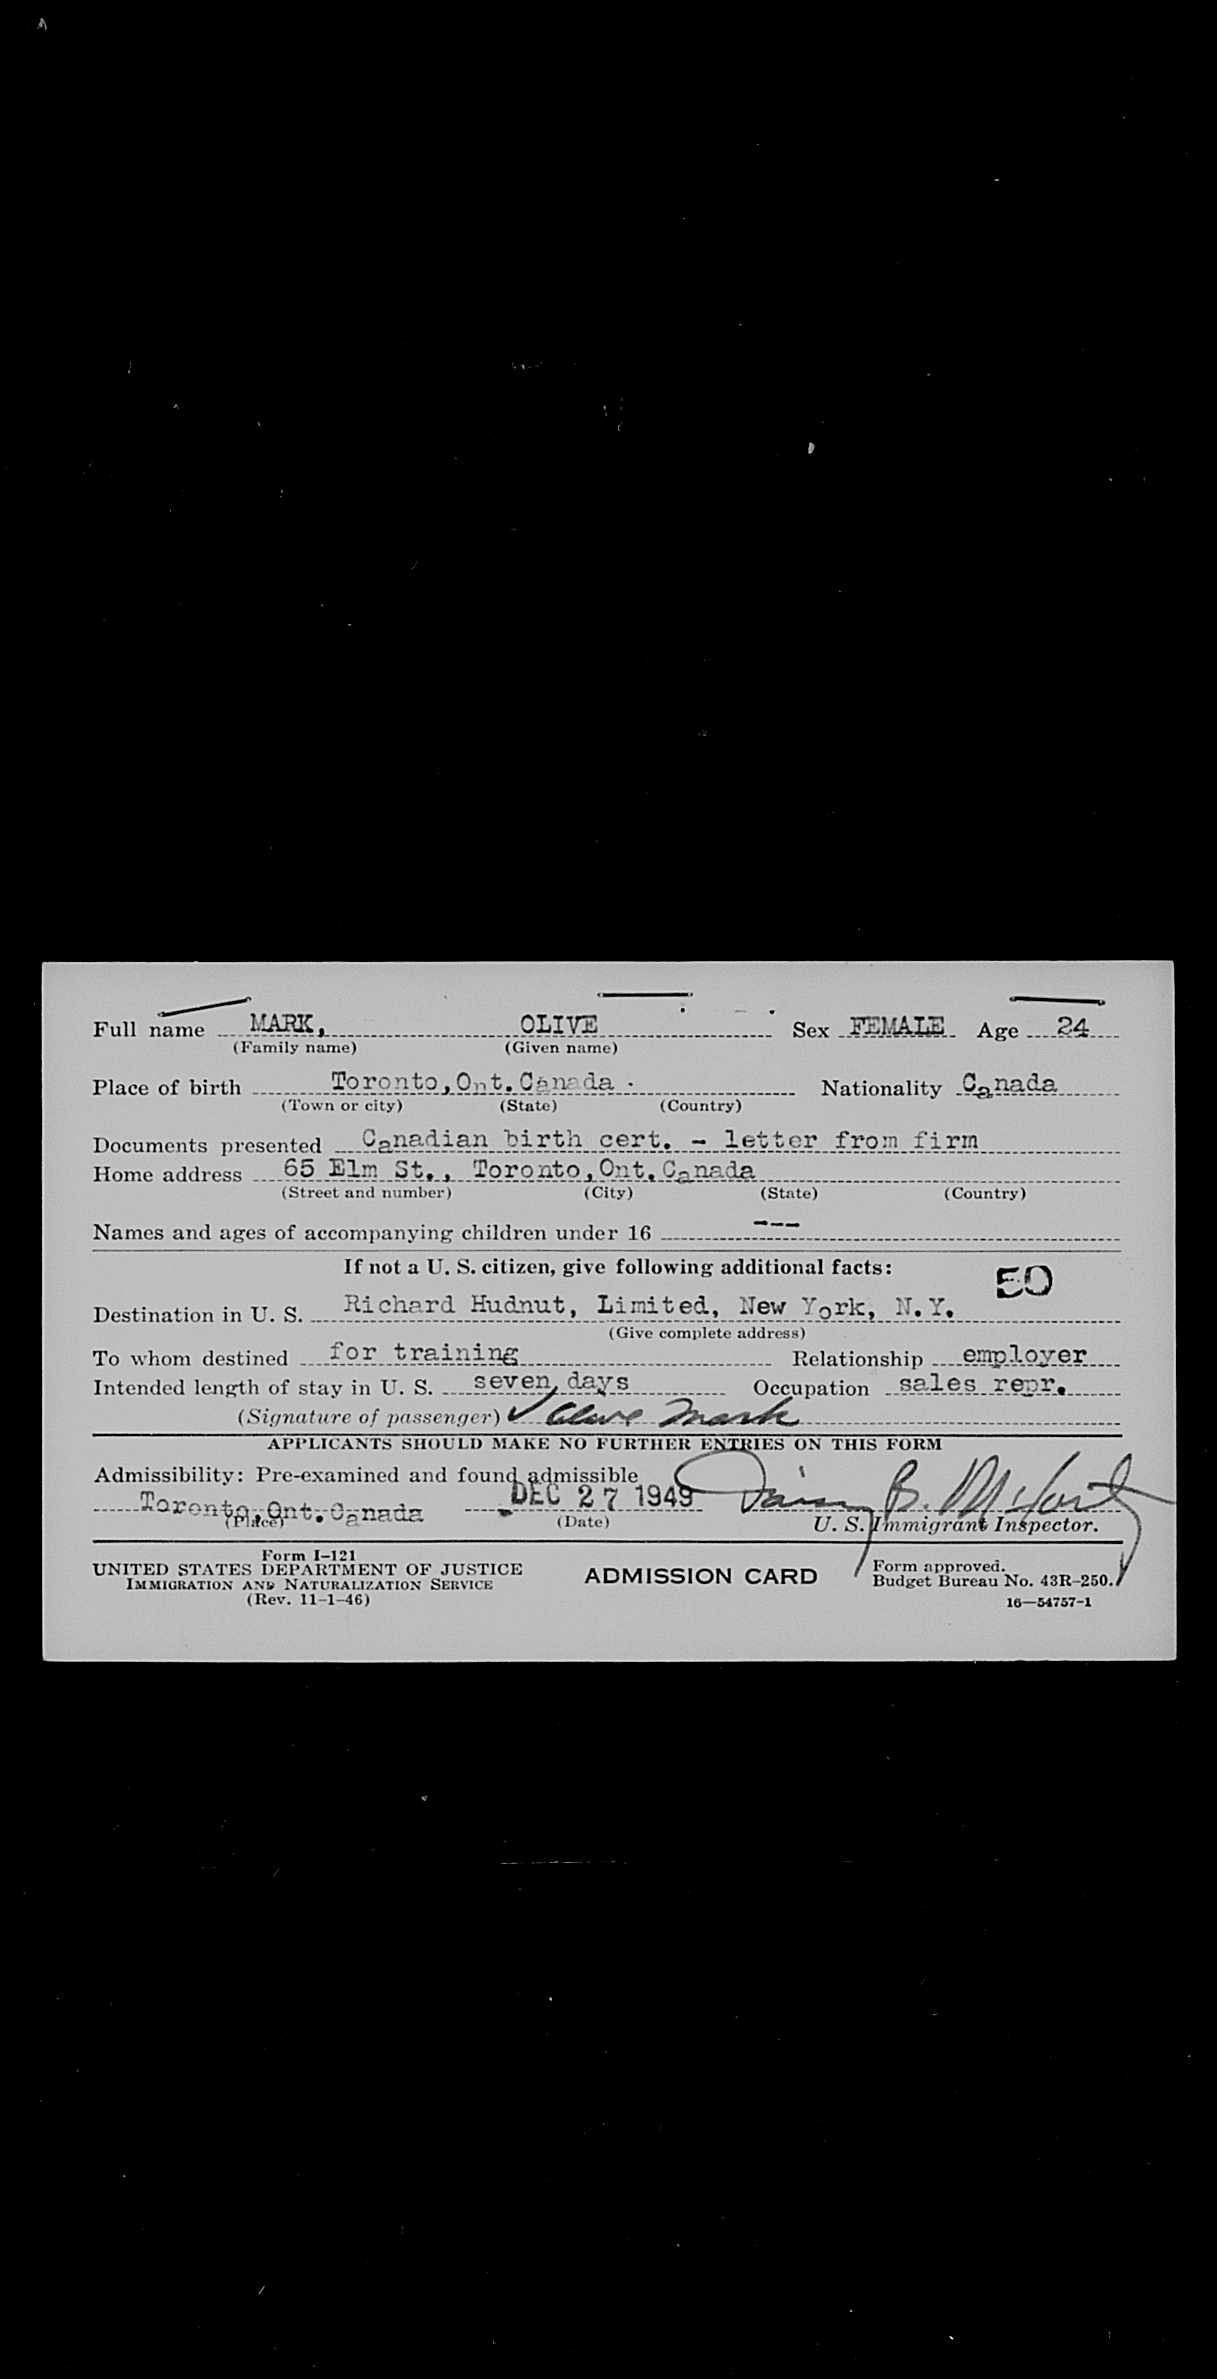 Full name MARK, OLIVE Sex FEMALE Age 24
(Family name) (Given name)
Place of birth Toronto, Ont. Canada Nationality Canada
(Town or city) (State) (Country)
Documents presented Canadian birth cert. - letter from firm
Home address 65 Elm St., Toronto, Ont. Canada
(Street and number) (City) (State) (Country)
Names and ages of accompanying children under 16 ---
If not a U. S. citizen, give following additional facts:
50
Destination in U. S. Richard Hudnut, Limited, New York, N.Y.
(Give complete address)
To whom destined for training Relationship employer
Intended length of stay in U. S. seven days Occupation sales repr.
(Signature of passenger) Olive Mark
APPLICANTS SHOULD MAKE NO FURTHER ENTRIES ON THIS FORM
Admissibility: Pre-examined and found admissible
Toronto, Ont. Canada DEC 27 1949 B.
(Place) (Date) U. S. Immigrant Inspector.
Form I-121
UNITED STATES DEPARTMENT OF JUSTICE
IMMIGRATION AND NATURALIZATION SERVICE
(Rev. 11-1-46)
ADMISSION CARD
Form approved.
Budget Bureau No. 43R-250.
16—54757-1